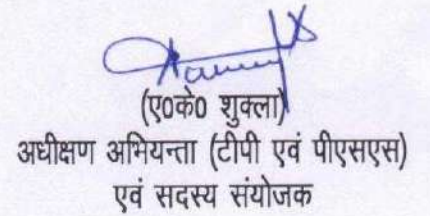 (ए०के० शुक्ला)
अधीक्षण अभियन्ता (टीपी एवं पीएसएस)
एवं सदस्य संयोजक